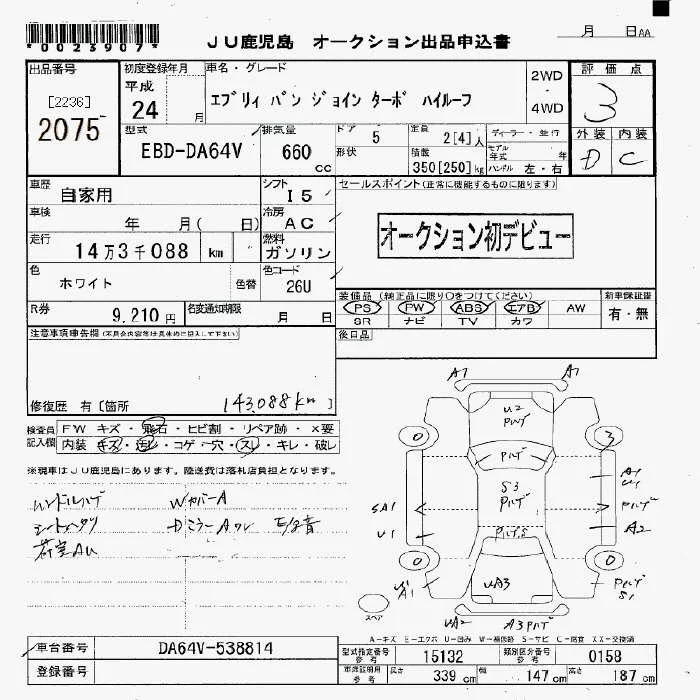 *0023907*
JU鹿児島 オークション出品申込書
月 日AA
出品番号
[2236]
2075
初度登録年月
平成
24 月
車名・グレード
エブリィ バン ジョイン ターボ ハイルーフ
2WD
・
4WD
評価点
3
外装 内装
D C
型式
EBD-DA64V
排気量
660
cc
ドア 5
形状
定員 2[4]人
積載 350[250]kg
ディーラー・並行
モデル年式 年
ハンドル 左・右
車歴 自家用
シフト I5
セールスポイント(正常に機能するものに限ります)
車検 年 月( 日)
冷房 AC
オークション初デビュー
走行 14万3千088 km
燃料 ガソリン
色 ホワイト 色替
色コード 26U
装備品(純正品に限り○をつけてください)
PS PW ABS エアB AW
SR ナビ TV カワ
新車保証書
有・無
R券 9,210円
名変通知期限 月 日
後日品
注意事項申告欄
修復歴 有〔箇所 143,088km 〕
検査員記入欄
FW キズ・飛石・ヒビ割・リペア跡・×要
内装・キズ・汚レ・コゲ・穴・スレ・キレ・破レ
※現車はJU鹿児島にあります。陸送費は落札店負担となります。
ハンドルハゲ WカバーA
Dミラー
A1 A1
U2
0 3
S3
A1
U1
SA1
U1
A2
0 0
UA3
S1
スペア
UA2 A3
A-キズ E-エクボ U-凹み W-補修跡 S-サビ C-腐食 XX-交換済
車台番号 DA64V-538814
登録番号
型式指定番号 参考 15132
類別区分番号 参考 0158
車検証明用 参考 長さ 339cm 幅 147cm 高さ 187cm